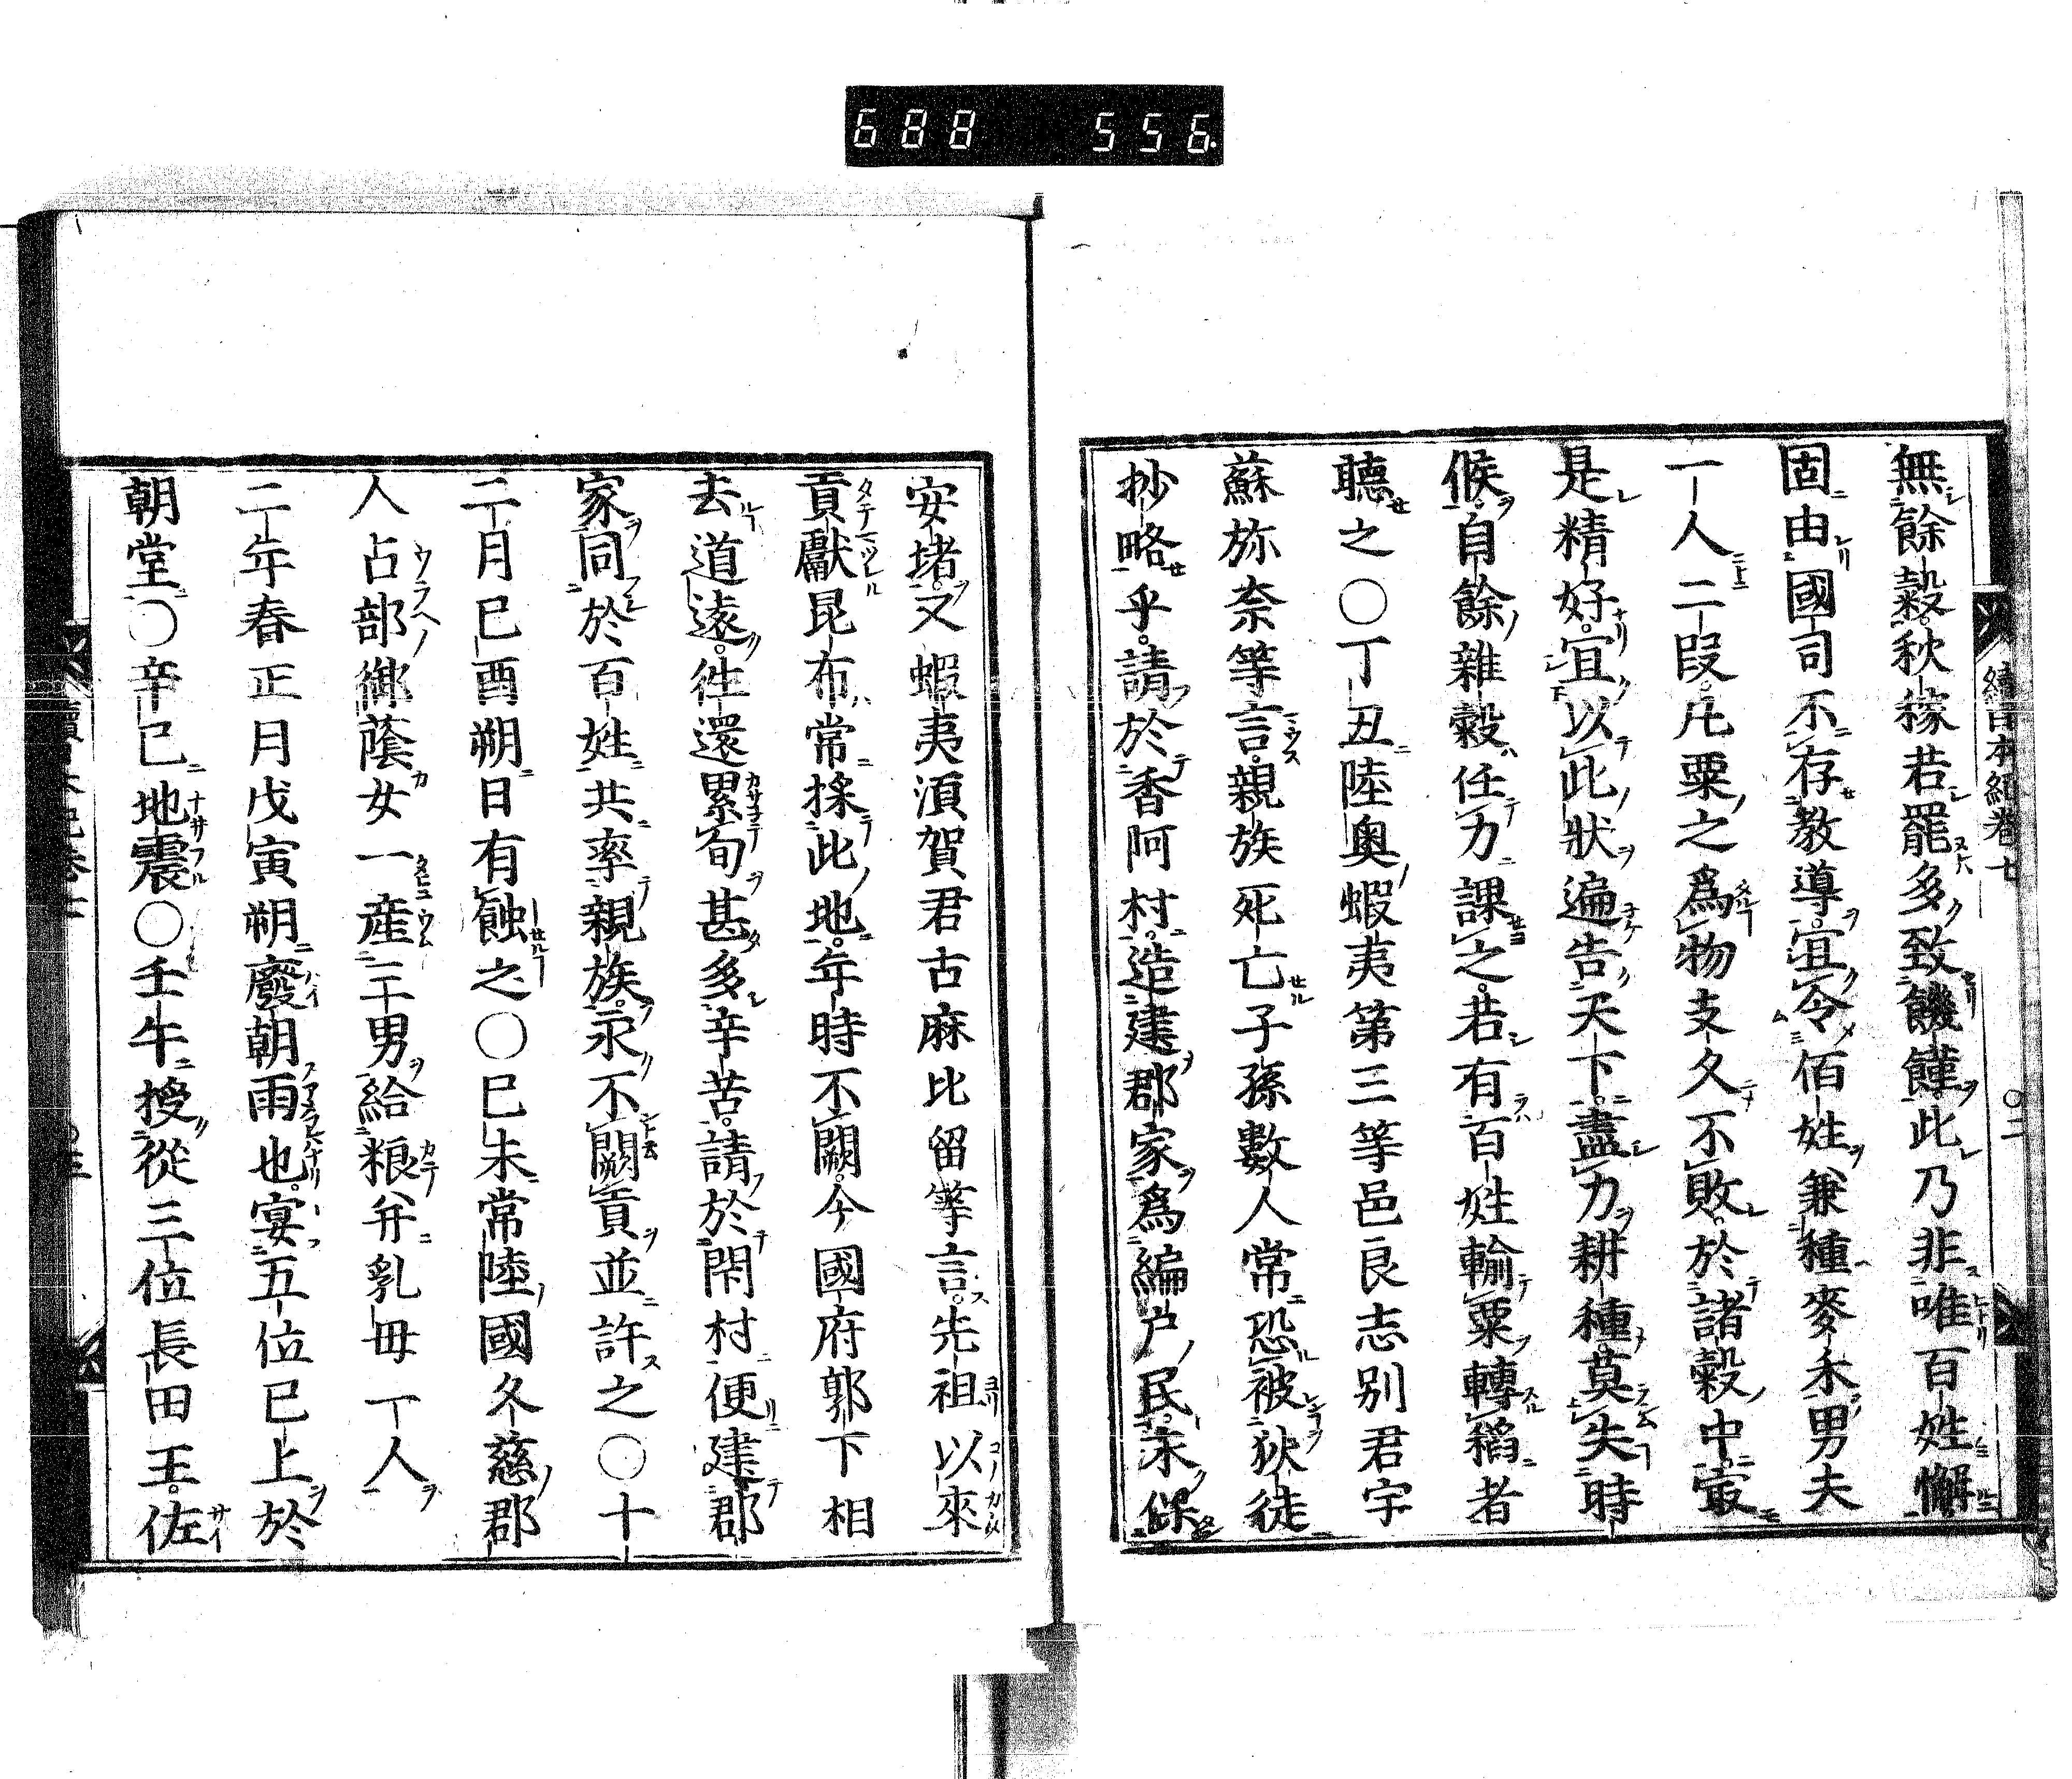 688 556
續日本紀卷七
○二
無餘穀。秋稼若罷多致饑饉。此乃非唯百姓懈
固由國司不存教導。宜令佰姓兼種麥禾男夫
一人二段。凡粟之爲物支久不敗。於諸穀中。㝡
是精好。宜以此狀遍告天下。盡力耕種。莫失時
候。自餘雜穀任力課之。若有百姓輸粟轉稻者
聽之○丁丑陸奧蝦夷第三等邑良志別君宇
蘇弥奈等言。親族死亡子孫數人常恐被狄徒
抄略乎。請於香阿村。造建郡家爲編戸民。永保
安堵。又蝦夷湏賀君古麻比留等言。先祖以來
貢獻昆布常採此地。年時不闕。今國府郭下相
去道遠。徃還累旬甚多辛苦。請於閇村便建郡
家同於百姓共率親族。永不闕貢並許之○十
二月已酉朔日有蝕之○已未常陸國久慈郡
人占部御蔭女一產三男給粮幷乳母一人
二年春正月戊寅朔廢朝雨也。宴五位已上於
朝堂○辛已地震○壬午授從三位長田王。佐